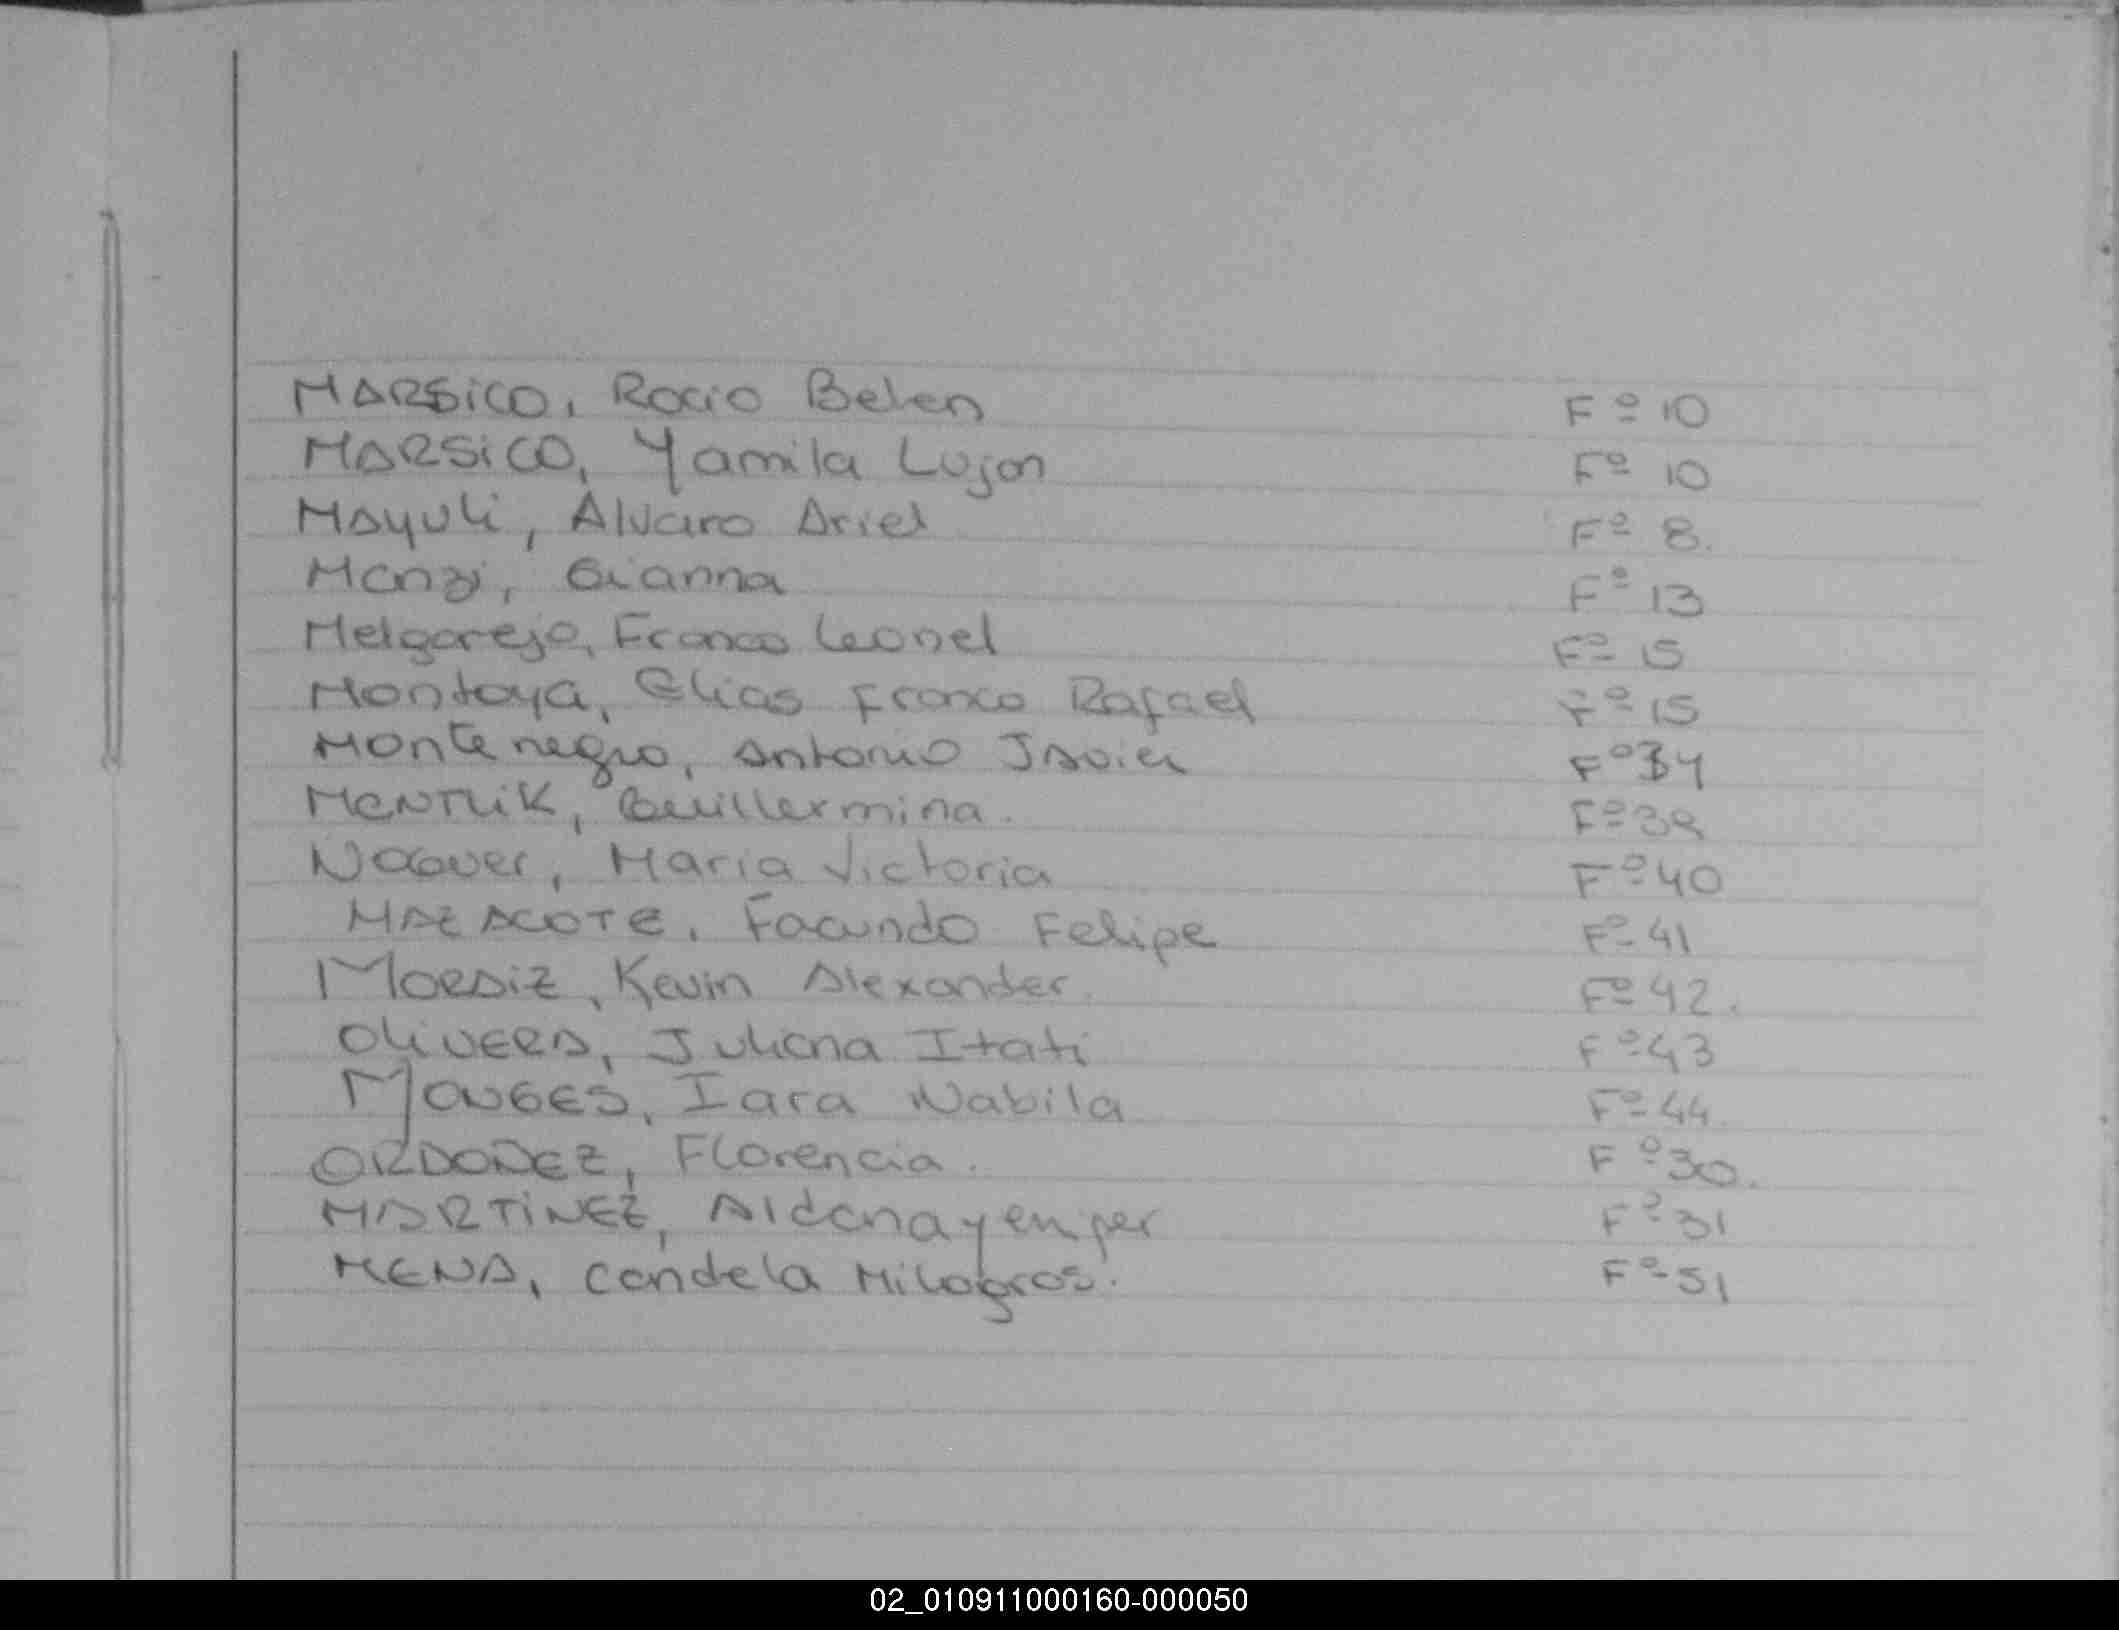 MARSiCO, Rocio Belen F º 10
MARSiCO, Yamila Lujan Fº 10
MAyuli, Alvaro Ariel Fº 8.
Manzi, Gianna Fº 13
Melgarejo, Franco Leonel Fº 15
Montoya, Elias Franco Rafael Fº 15
Montenegro, Antonio Javier Fº 34
MENTLiK, Guillermina. Fº 39
Noguer, Maria Victoria Fº 40
MAZACOTE, Facundo Felipe Fº 41
Kevin Alexander. Fº 42.
OliVERA, Juliana Itati Fº 43
MONGES, Iara Nabila Fº 44.
ORDOÑEZ, Florencia. F º 30.
MARTiNEZ, Aldana yenifer Fº 31
MENA, Candela Milagros. Fº 51
02_010911000160-000050